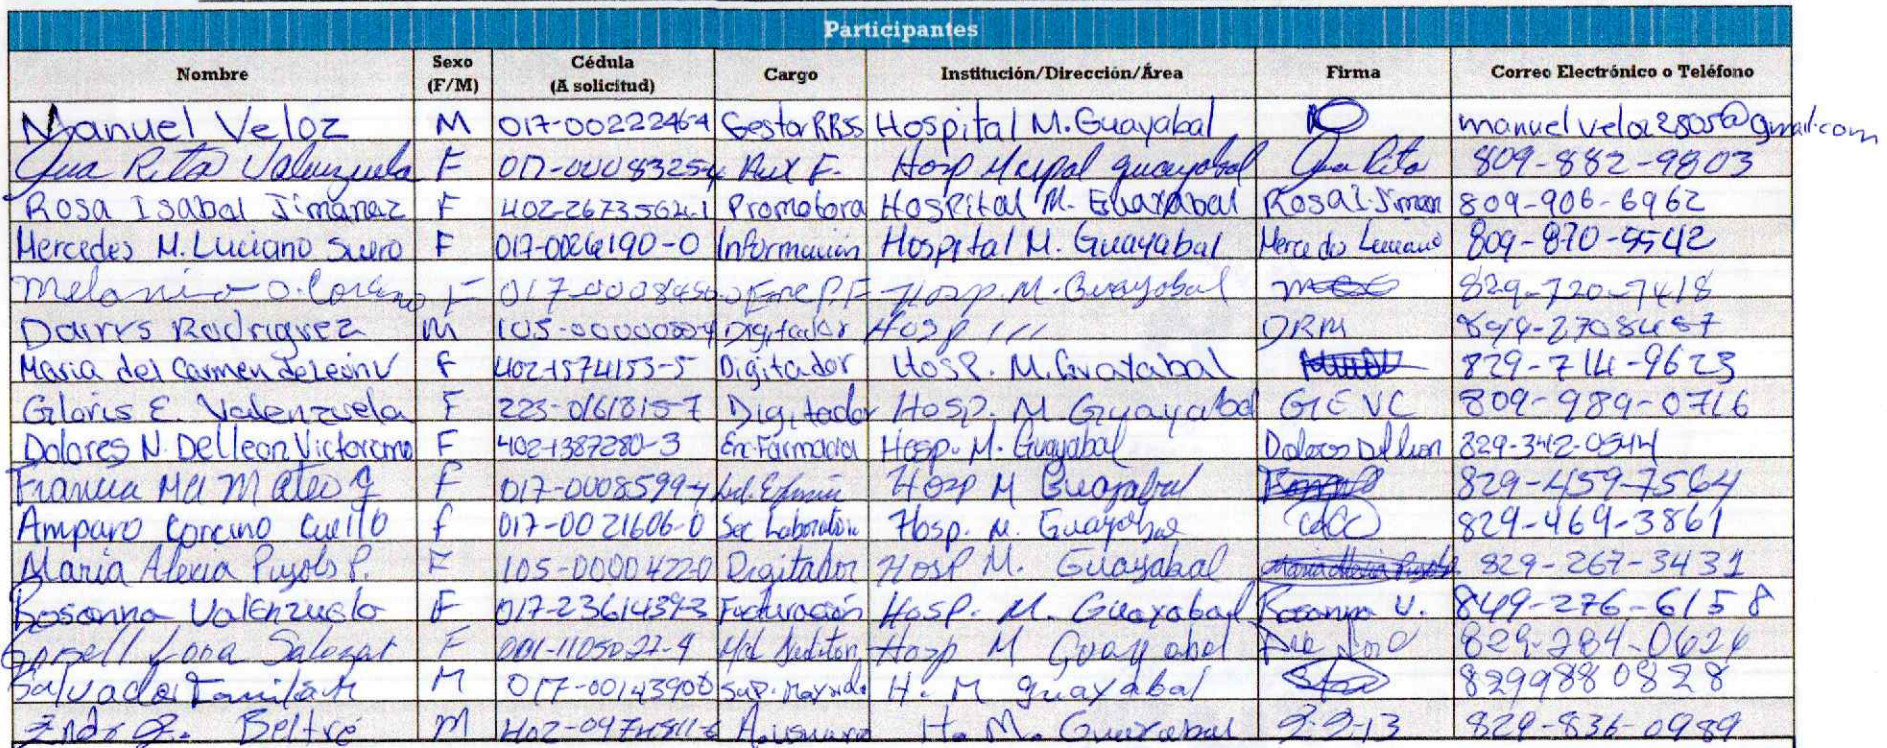 Participantes
Nombre Sexo (F/M) Cédula (A solicitud) Cargo Institución/Dirección/Área Firma Correo Electrónico o Teléfono
Manuel Veloz M 017-0022246-4 Gestor RRSS Hospital M. Guayabal manuelveloz2805@gmail.com
Ana Rita Valenzuela F Aux F. Hosp Mcipal guayabal Ana Rita 809-882-9803
Rosa Isabal Jimanaz F 402-2673562-1 Promotora Hospital M. Guayabal 809-906-6962
Mercedes M. Luciano Suero F 017-0026190-0 Información Hospital M. Guayabal Mercedes Luciano 809-870-5542
F Hosp. M. Guayabal 829-720-7418
Rodriguez M Digitador Hosp /// DRM
Maria del Carmen de León V f 402-1574153-5 Digitador Hosp. M. Guayabal 829-714-9623
Gloris E. Valenzuela F 223-0161815-7 Digitador Hosp. M Guayabal GEVC 809-989-0716
Dolores N. Delleon Victorino F 402-1387280-3 En. Farmacia Hosp. M. Guayabal Dolores Delleon 829-342-0544
Francia Ma Mateo f 017-0008599-4 Hosp M Guayabal 829-459-7564
Amparo Corcino Cuello f 017-0021606-0 Sec Laboratorio Hosp. M. Guayabal 829-469-3861
Maria Alexia Pujols P. F 105-0000422-0 Digitador Hosp M. Guayabal 829-267-3431
Rosanna Valenzuela F 017-2361439-3 Facturación Hosp. M. Guayabal Rosanna V. 849-276-6158
F Hosp M Guayabal 829-284-0626
Salvador M H. M guayabal 8299880828
Beltré M H. M. Guayabal 829-836-0989